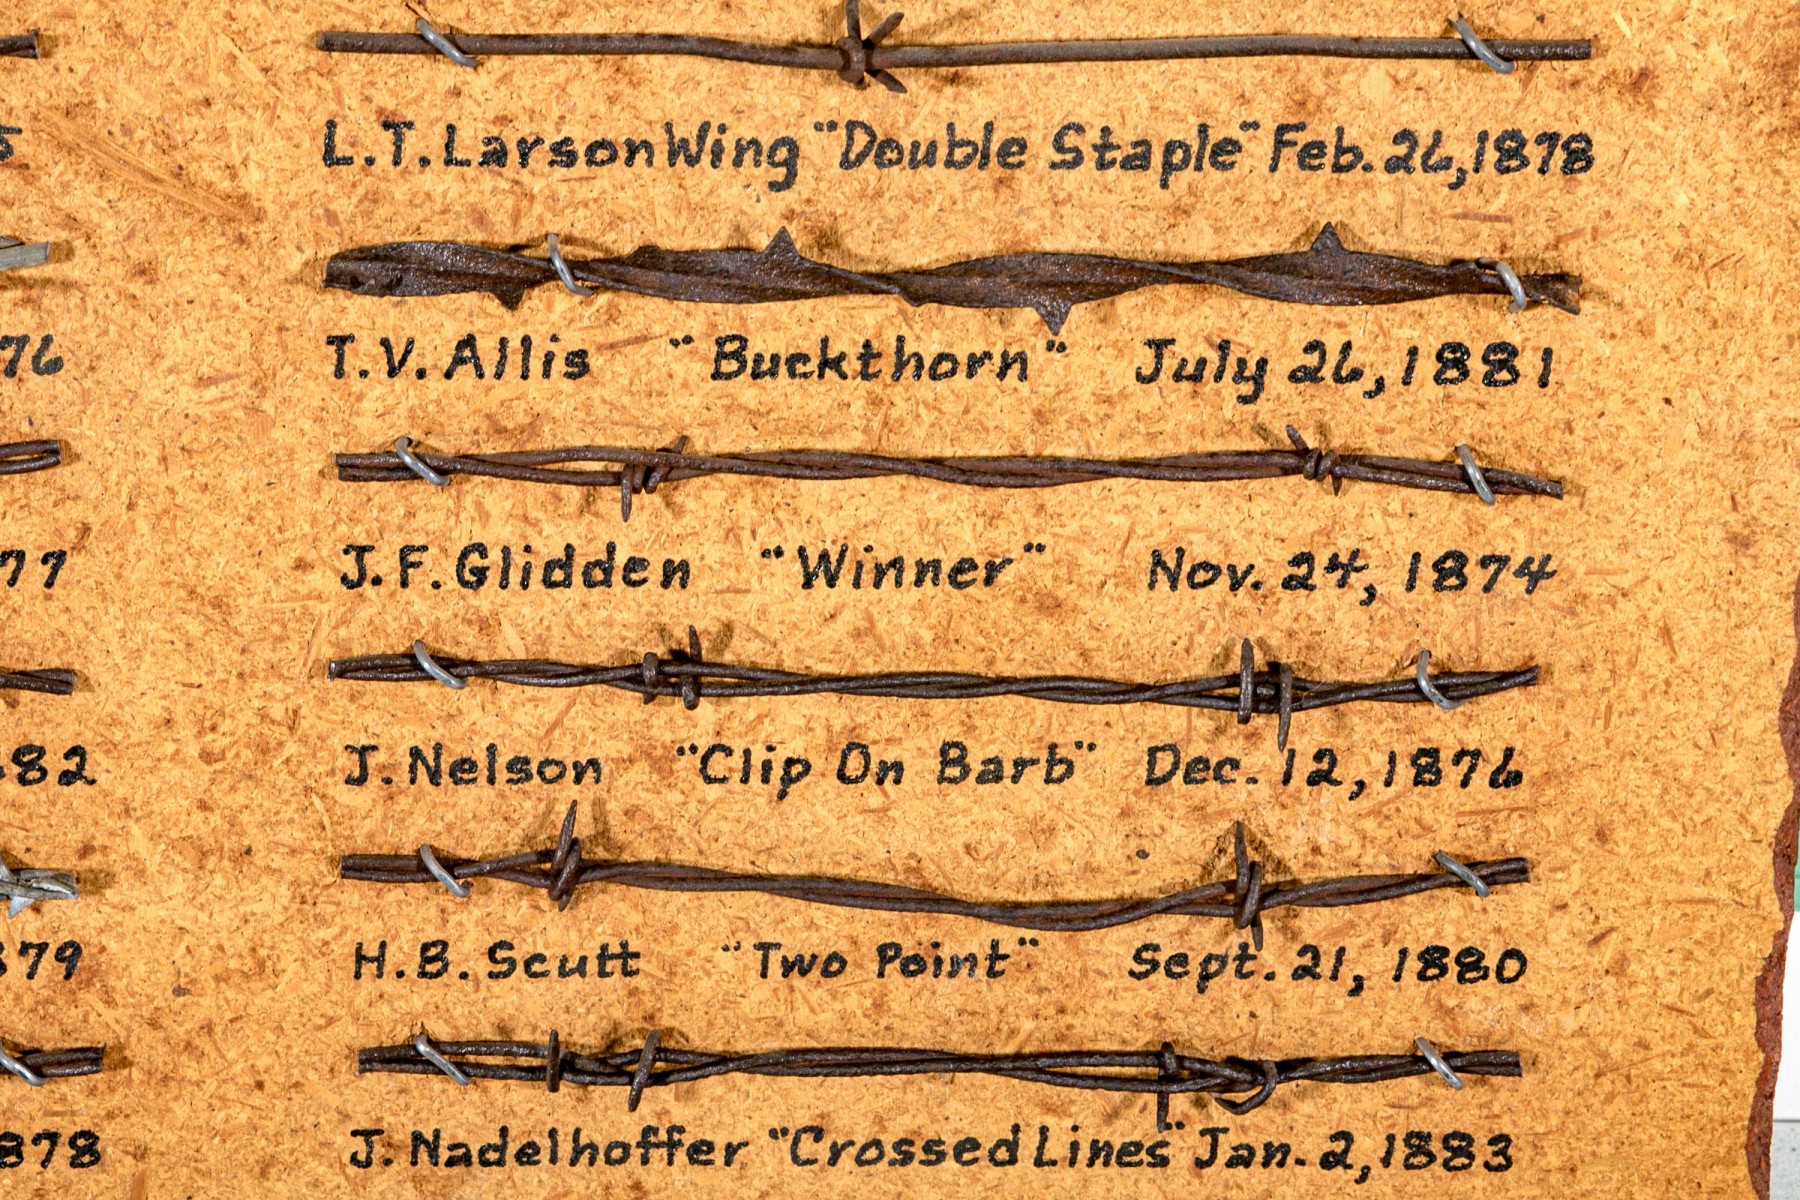 5
L.T. Larson Wing "Double Staple" Feb. 26, 1878
76
T.V. Allis "Buckthorn" July 26, 1881
77
J.F. Glidden "Winner" Nov. 24, 1874
82
J. Nelson "Clip On Barb" Dec. 12, 1876
879
H.B. Scutt "Two Point" Sept. 21, 1880
878
J. Nadelhoffer "Crossed Lines" Jan. 2, 1883